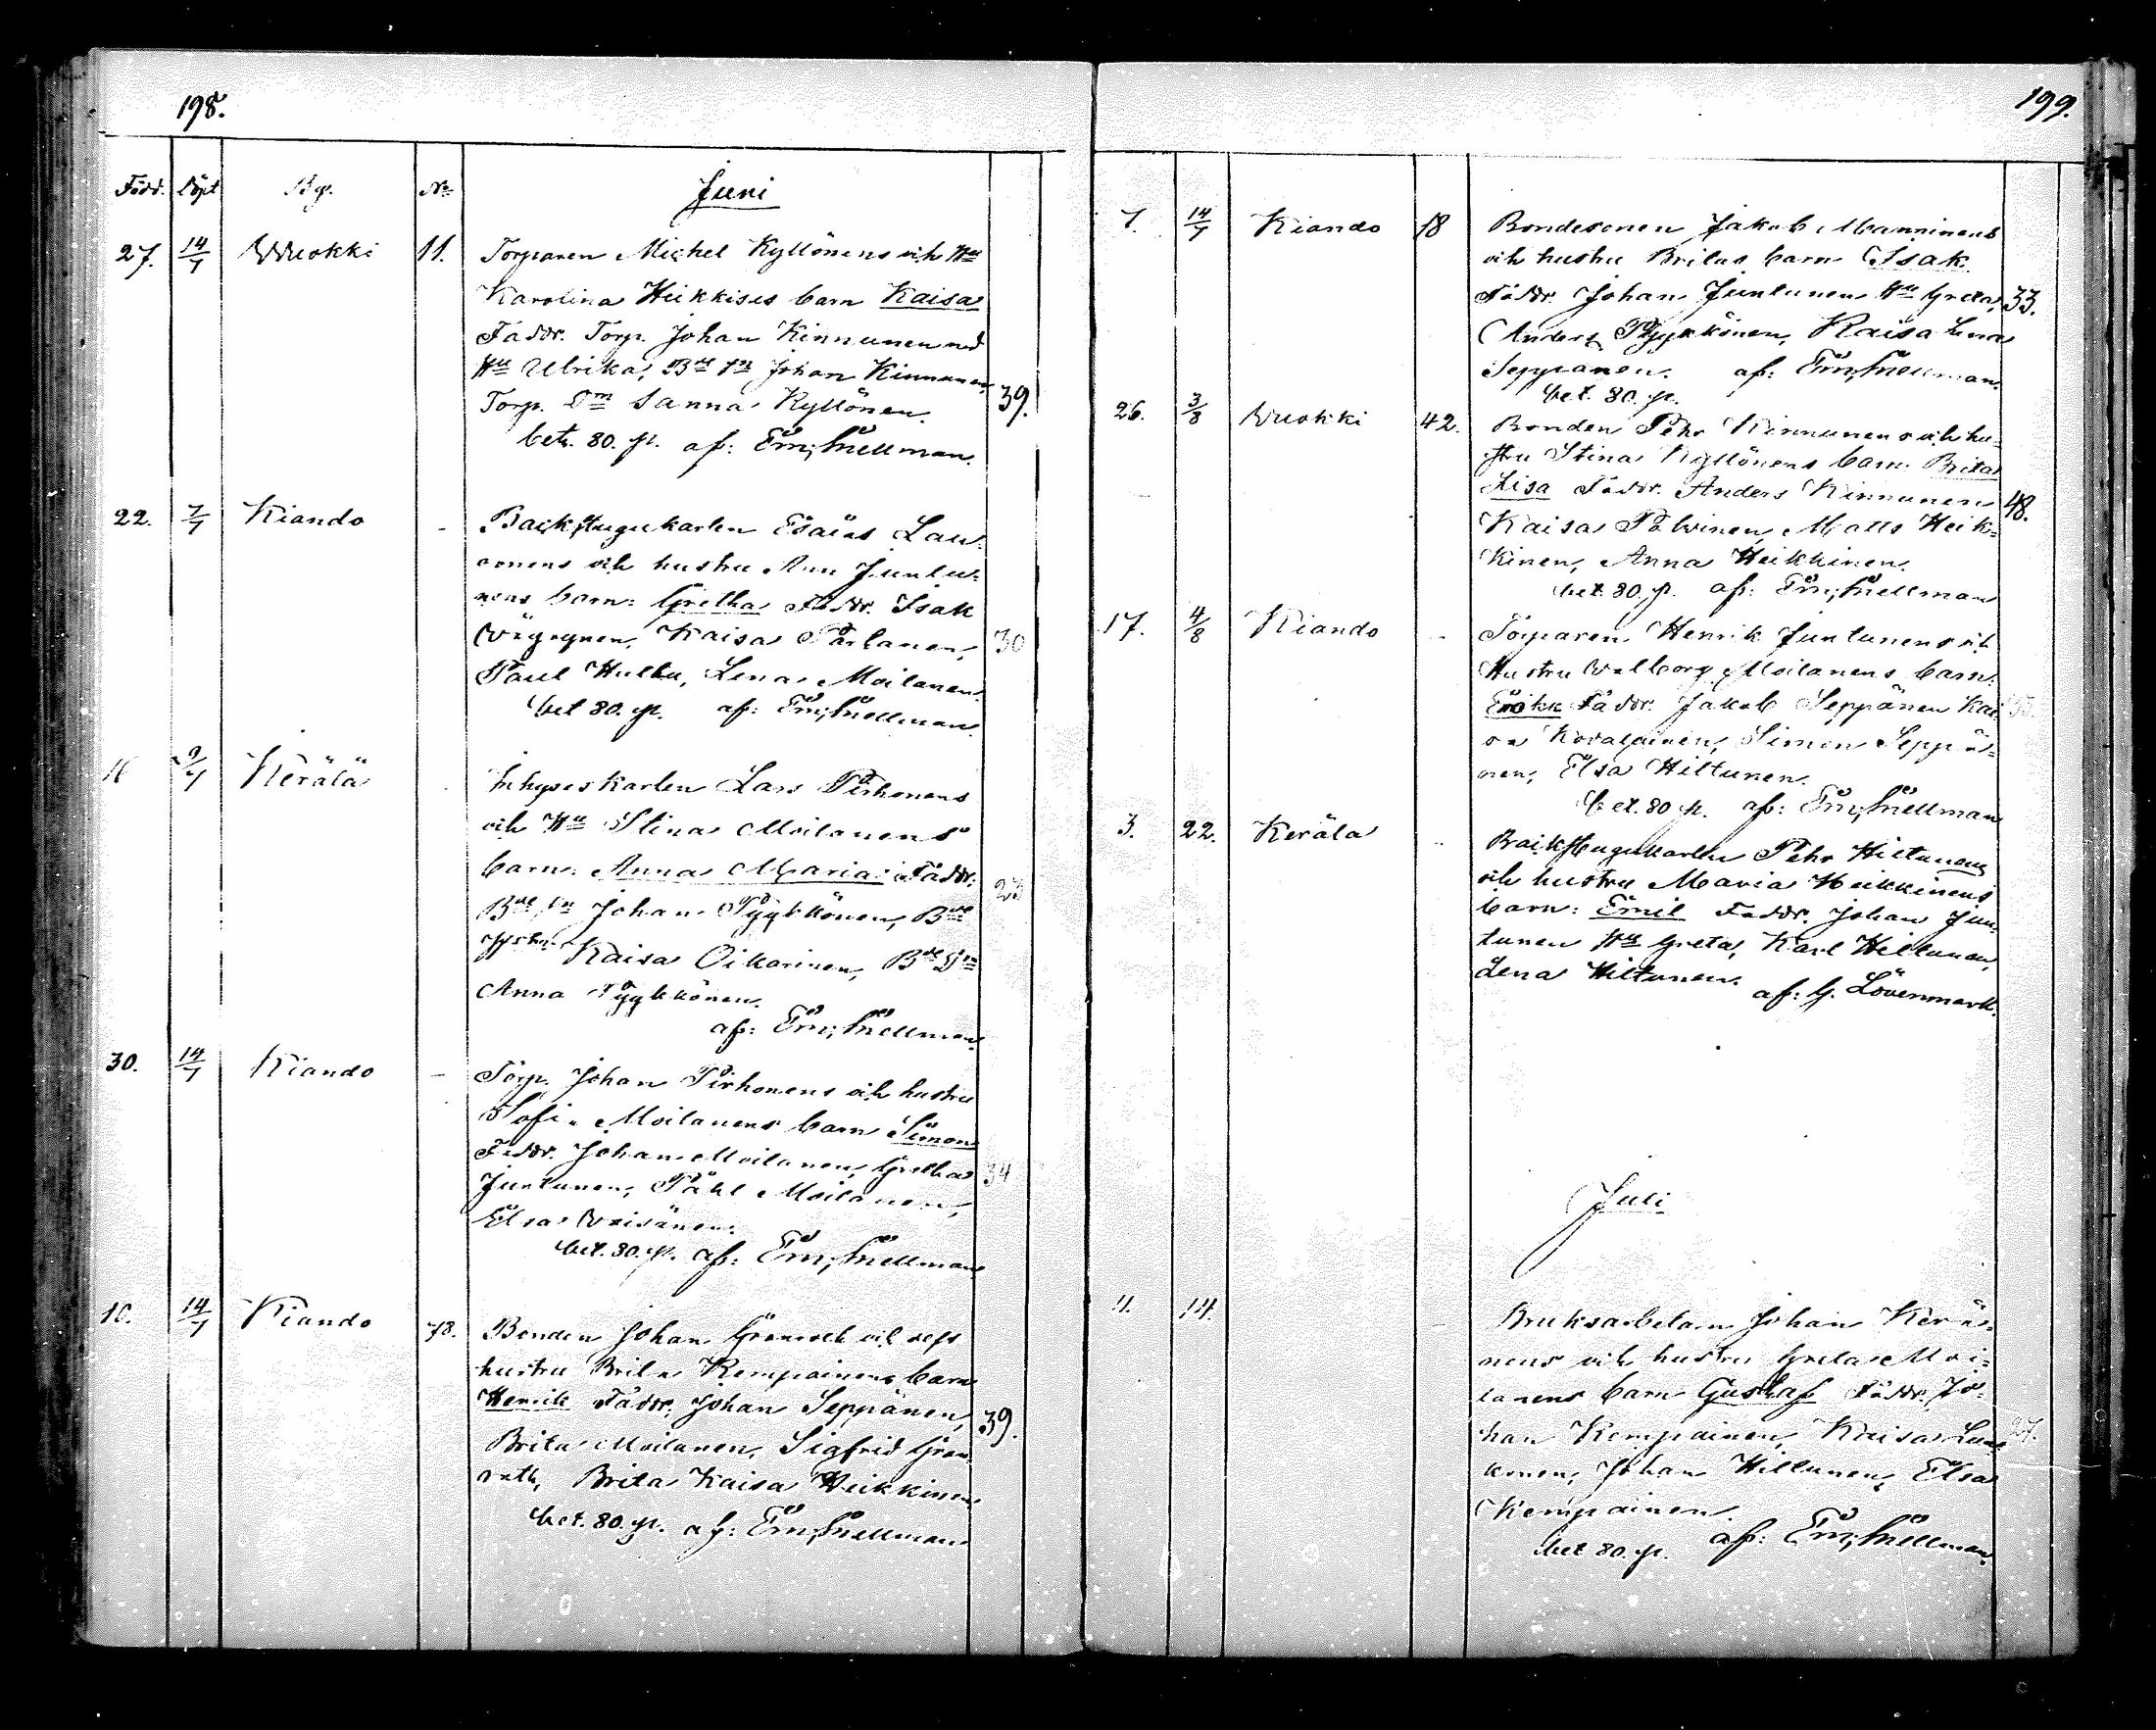 198.
Född. Döpt By. No Juni
27. 14/7 Wuokki 11. Torparen Michel Kyllönens och Hu
Karolina Heikkises barn Kaisa
Faddr. Torp. Johan Kinnunen med
Hu Ulrika, Bde sn Johan Kinnunen,
Torp. Dm Sanna Kyllönen. 39.
bet. 80. p. af: Em; Snellman.
22. 7/7 Kiando - Backstugukarlen Esaias Lau-
ronens och hustru Anu Juntu-
nens barn: Gretha Faddr. Isak
Wäyrynen, Kaisa Partanen, 30
Paul Hulku, Lena Moilanen.
bet 80. p. af: Em; Snellman.
16 9/7 Kerälä Inhyseskarlen Lars Pirhonens
och Hu Stina Moilanens
barn: Anna Maria Faddr.
Bde sn Johan Pyykkönen, Bde
Kaisa Oikarinen, Bde Dm
Anna Pyykkönen.
af: Em; Snellman.
30. 14/7 Kiando - Torp. Johan Pirhonens och hustru
Sofia Moilanens barn Simon
Faddr. Johan Moilanen, Gretha 34
Juntunen, Påhl Moilanen,
Elsa Wäisänen.
bet. 80. p. af: Em; Snellman
10. 14/7 Kiando 78. Bonden Johan Granroth och
hustru Brita Kempainens barn
Henrik Faddr. Johan Seppänen, 39.
Brita Moilanen, Sigfrid Gran-
roth, Brita Kaisa Heikkinen
bet. 80. p. af: Em; Snellman
199.
7. 14/7 Kiando 18 Bondesonen Jakob Manninens
och hustru Britas barn Isak
Faddr. Johan Juntunen Hu Greta, 33.
Anders Pyykkönen, Kaisa Lena
Seppänen. af: Em; Snellman.
bet. 80. p.
26. 3/8 Wuokki 42. Bonden Pehr Kinnunens och hu-
stru Stina Kyllönens barn: Brita
Lisa Faddr. Anders Kinnunen 48.
Kaisa Palvinen, Matts Heik-
kinen, Anna Heikkinen.
bet. 80. p. af: Em; Snellman
17. 4/8 Kiando - Torparen Henrik Juntunens och
Hustru Walborg Moilanens barn:
Erikk Faddr. Jakob Seppänen Kai-
sa Kovalainen, Simon Seppä-
nen, Elsa Hiltunen.
bet. 80 p. af: Em; Snellman
3. 22. Kerälä - Backstugukarlen Pehr Hiltunens
och hustru Maria Heikkinens
barn: Emil Faddr. Johan Jun-
tunen Hu Greta, Karl Hiltunen,
Lena Hiltunen.
af: G. Lövenmark.
Juli
11. 14. Bruksarbetarn Johan Kerä-
nens och hustru Greta Moi-
lanens barn Gustaf Faddr. Jo-
han Kempainen, Kaisa Luuk- 27.
konen, Johan Hiltunen, Elsa
Kempainen.
bet 80. p. af: Em; Snellman.